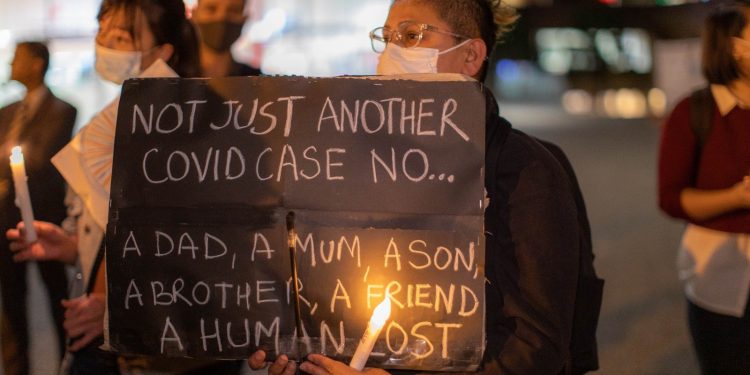 NOT JUST ANOTHER
COVID CASE NO...
A DAD, A MUM, A SON,
A BROTHER, A FRIEND
A HUMAN LOST